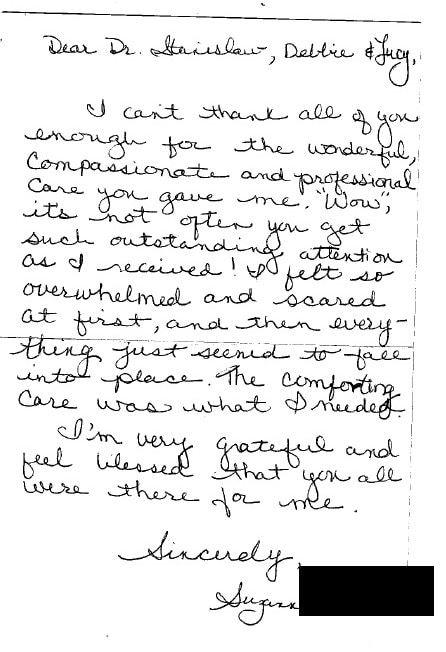 Dear Dr. Stanislaw, Debbie & Lucy,
I can't thank all of you
enough for the wonderful,
compassionate and professional
care you gave me. "Wow",
it's not often you get
such outstanding attention
as I received! I felt so
overwhelmed and scared
at first, and then every-
thing just seemed to fall
into place. The comforting
care was what I needed.
I'm very grateful and
feel blessed that you all
were there for me.
Sincerely,